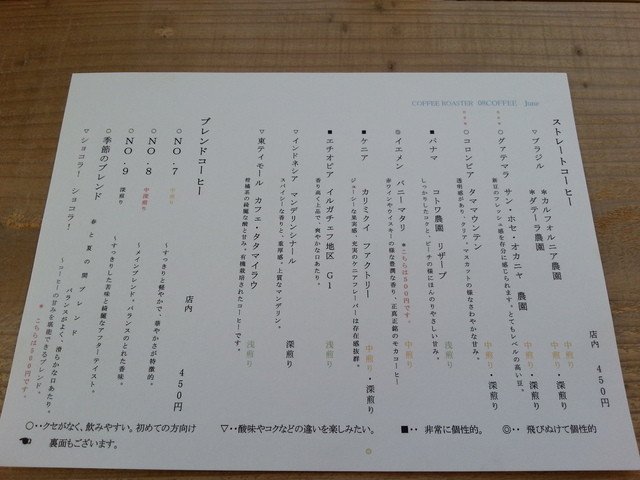 COFFEE ROASTER 188COFFEE June
ストレートコーヒー
店内 450円
▽ブラジル ＊カルフォルニア農園 中煎り・深煎り
＊ダテーラ農園 中煎り・深煎り
○グァテマラ サン・ホセ・オカニャ 農園 中煎り・深煎り
新豆のフレッシュ感を存分に感じられます。とてもレベルの高い豆。
○コロンビア タママウンテン 中煎り・深煎り
透明感があり、クリア。マスカットの様なさわやかな甘み。
■パナマ コトワ農園 リザーブ 浅煎り
しっかりしたコクと、ピーチの様にほんのりやさしい甘み。
◎イエメン バニーマタリ ＊こちらは500円です。 中煎り
赤ワインやウイスキーの様な芳潤な香り。正真正銘のモカコーヒー
■ケニア カリミクイ ファクトリー 中煎り・深煎り
ジューシーな果実感、充実のケニアフレーバーは存在感抜群。
■エチオピア イルガチェフ地区 G1 浅煎り
香り高く上品で、爽やかな口あたり。
▽インドネシア マンデリンシナール 深煎り
スパイシーな香りと、重厚感。上質なマンデリン。
▽東ティモール カフェ・タタマイラウ 浅煎り
柑橘系の綺麗な酸と甘み。有機栽培されたコーヒーです。
ブレンドコーヒー
店内 450円
○NO.7
～すっきりと軽やかで、華やかさが特徴的。
○NO.8 中深煎り
～メインブレンド。バランスのとれた香味。
○NO.9 深煎り
～すっきりした苦味と綺麗なアフターテイスト。
○季節のブレンド 春と夏の間ブレンド
～バランスがよく、滑らかな口あたり。
▽ショコラ！ ショコラ！
～コーヒーの甘みを堪能できるブレンド。
＊こちらは500円です。
○‥クセがなく、飲みやすい。初めての方向け ▽‥酸味やコクなどの違いを楽しみたい。 ■‥ 非常に個性的。 ◎‥ 飛びぬけて個性的
裏面もございます。